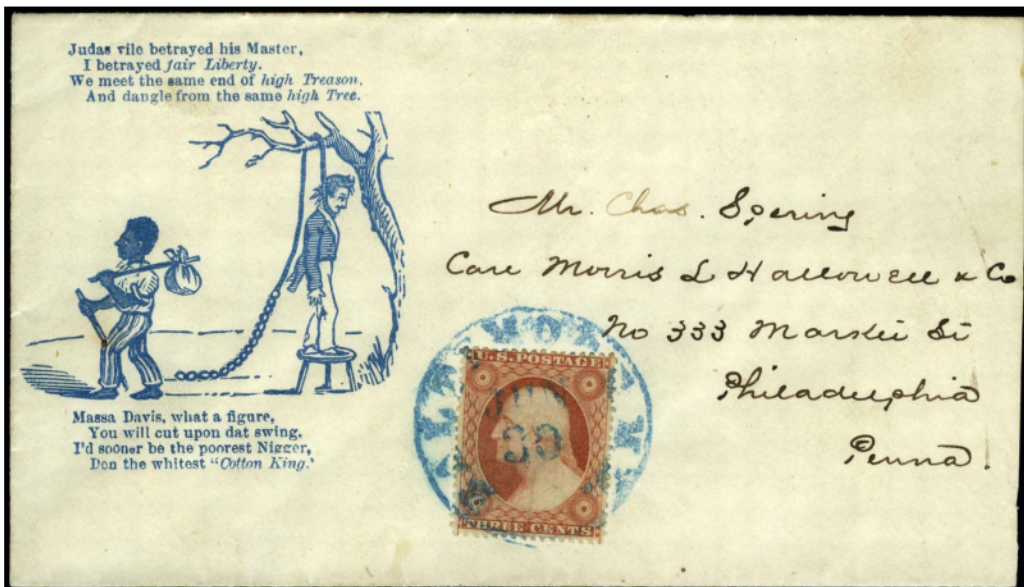 Judas vile betrayed his Master,
I betrayed fair Liberty.
We meet the same end of high Treason.
And dangle from the same high Tree.
Massa Davis, what a figure,
You will cut upon dat swing.
I'd sooner be the poorest Nigger,
Den the whitest "Cotton King."
Mr. Chas. Spering
Care Morris L Hallowell & Co
No 333 Market St
Philadelphia
Penna.
U.S. POSTAGE
30
THREE CENTS